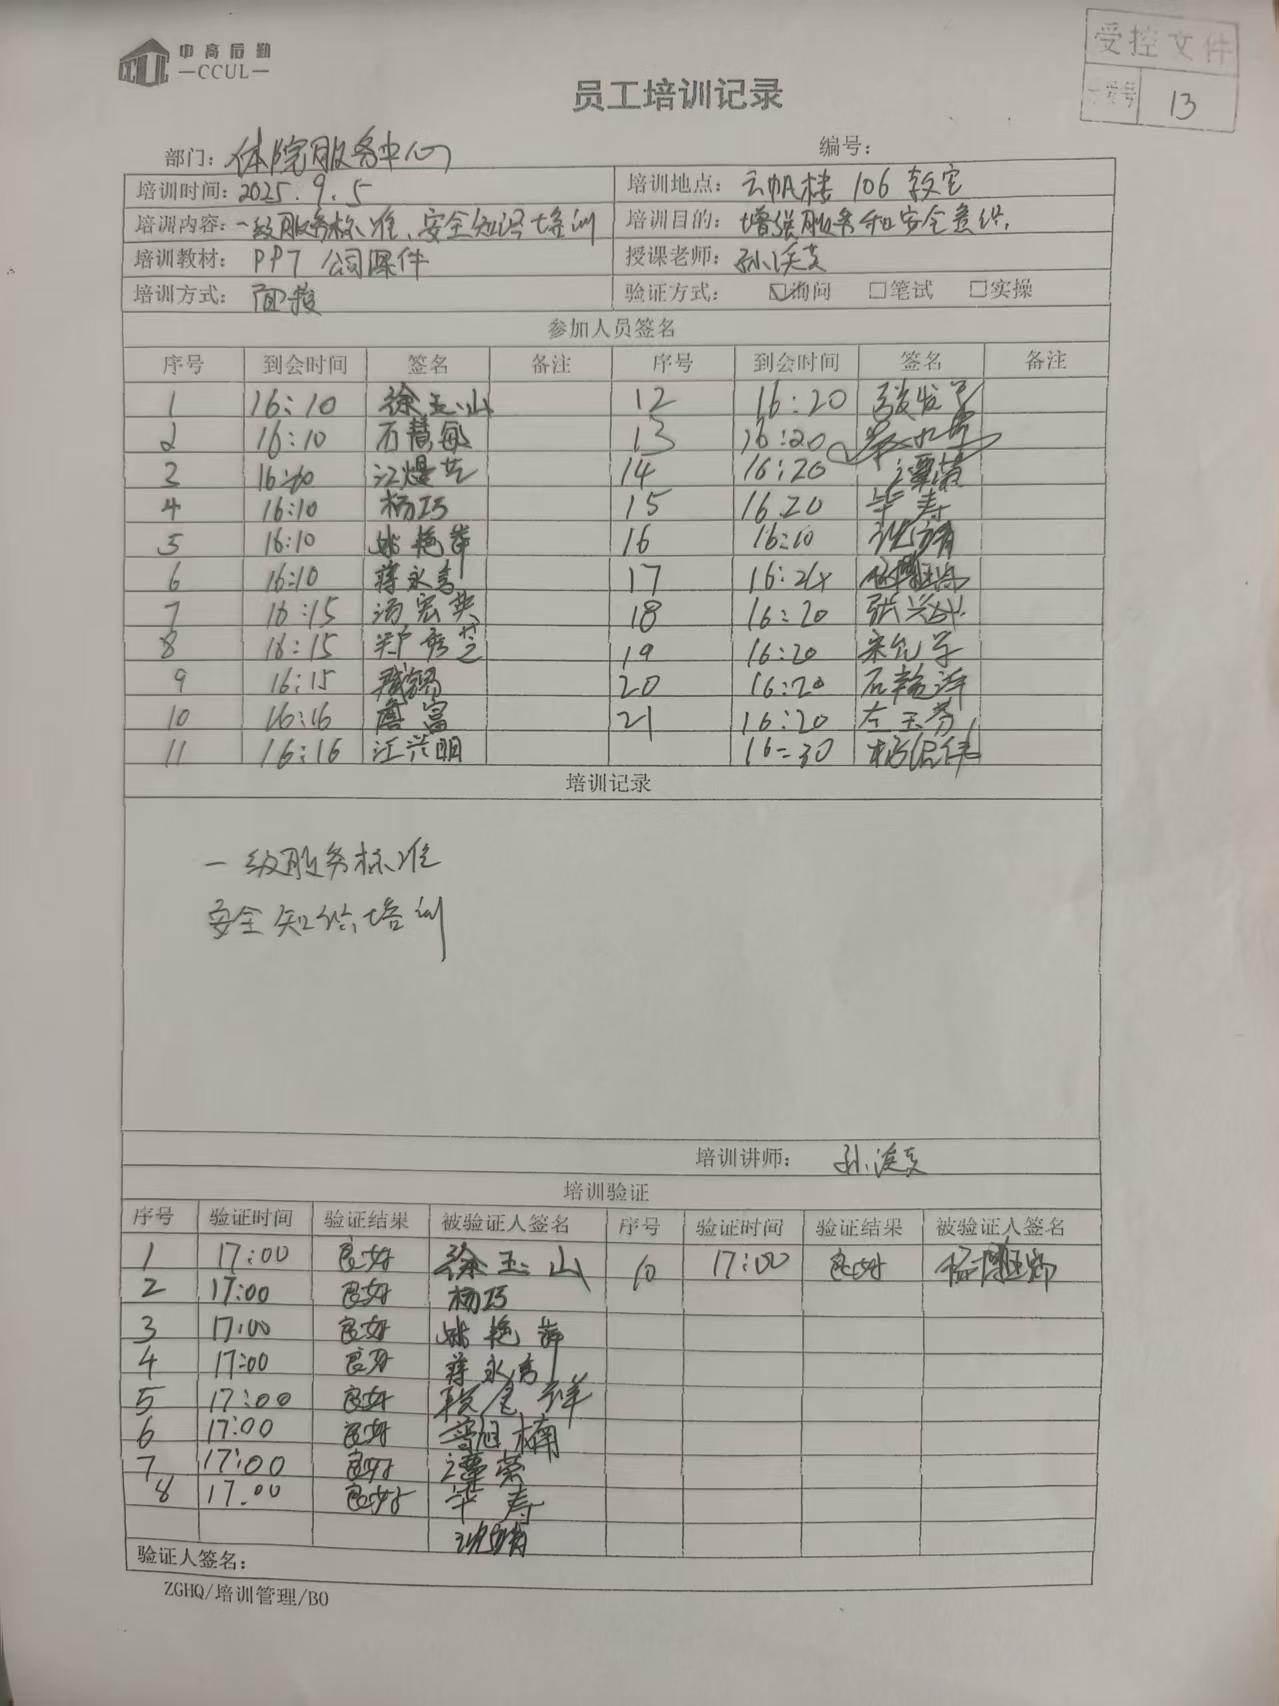 中高后勤
—CCUL—
受控文件
13
员工培训记录
部门：体院服务中心 编号：
培训时间：2025.9.5 培训地点：云帆楼 106 教室
培训内容：一级服务标准、安全知识培训 培训目的：增强服务和安全意识.
培训教材：PPT 公司课件 授课老师：孙
培训方式：面授 验证方式：☑询问 □笔试 □实操
参加人员签名
序号 到会时间 签名 备注 序号 到会时间 签名 备注
1 16:10 徐玉山 12 16:20
2 16:10 石慧敏 13 16:20
3 16:10 江 14 16:20 谭荣
4 16:10 杨巧 15 16.20 毕寿
5 16:10 姚艳萍 16 16:10 沈
6 16:10 蒋永秀 17 16:24
7 16:15 汤宏英 18 16:20 张兴
8 16:15 郑秀芝 19 16:20 宋
9 16:15 20 16:20 石
10 16:16 詹富 21 16:20 左玉芬
11 16:16 江兴明 16:30 杨
培训记录
一级服务标准
安全知识培训
培训讲师：孙
培训验证
序号 验证时间 验证结果 被验证人签名 序号 验证时间 验证结果 被验证人签名
1 17:00 良好 徐玉山 10 17:00 良好
2 17:00 良好 杨巧
3 17:00 良好 姚艳萍
4 17:00 良好 蒋永秀
5 17:00 良好
6 17:00 良好
7 17:00 良好 谭荣
8 17.00 良好 毕寿
沈
验证人签名：
ZGHQ/培训管理/B0